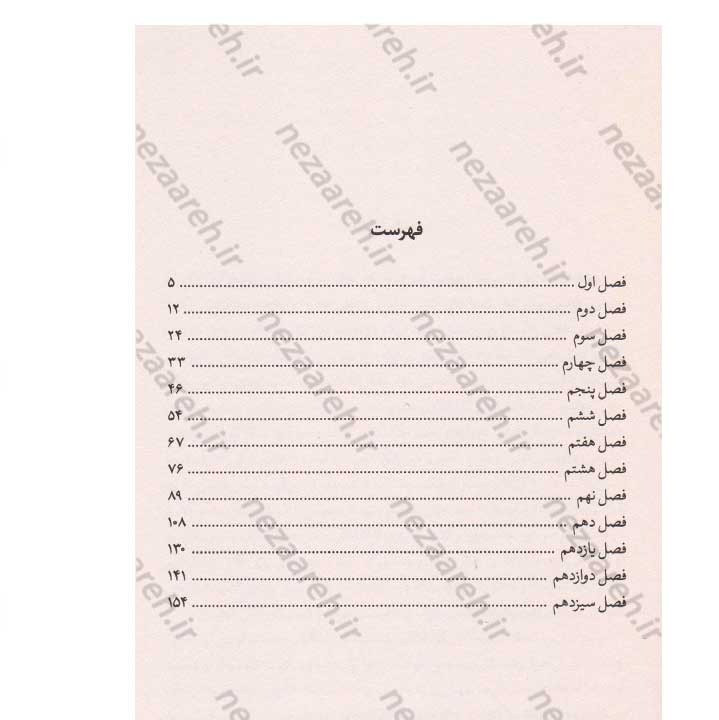 فهرست
فصل اول ........ ۵
فصل دوم ........ ۱۲
فصل سوم ........ ۲۴
فصل چهارم ........ ۳۳
فصل پنجم ........ ۴۶
فصل ششم ........ ۵۴
فصل هفتم ........ ۶۷
فصل هشتم ........ ۷۶
فصل نهم ........ ۸۹
فصل دهم ........ ۱۰۸
فصل یازدهم ........ ۱۳۰
فصل دوازدهم ........ ۱۴۱
فصل سیزدهم ........ ۱۵۴
nezaareh.ir